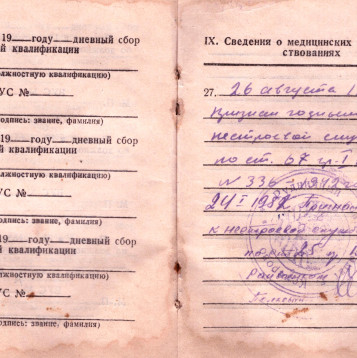 19 году дневный сбор
й квалификации
должностную квалификацию)
УС №
одпись: звание, фамилия)
19 году дневный сбор
й квалификации
должностную квалификацию)
УС №
дпись: звание, фамилия)
19 году дневный сбор
й квалификации
должностную квалификацию)
УС №
пись: звание, фамилия)
IX. Сведения о медицинских
ствованиях
27. 26 августа 1
признан годным
нестроевой
по ст. 67 гр. I
N 336
24 I 198
к нестроевой